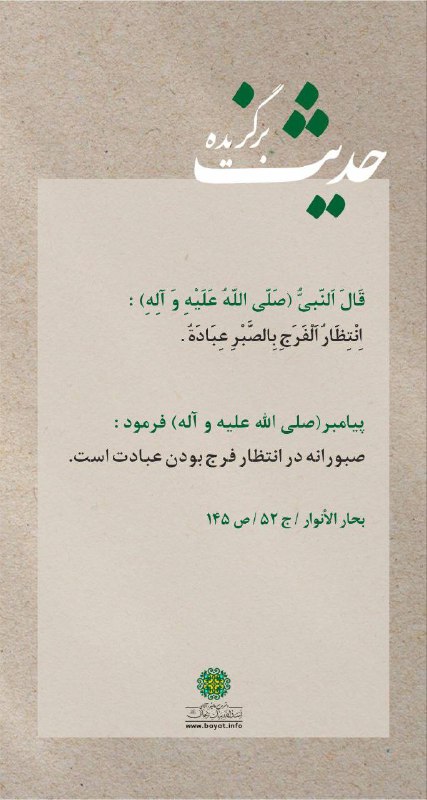 حدیث
برگزیده
قَالَ اَلنَّبِيُّ (صَلَّى اللّهُ عَلَيْهِ وَ آلِهِ) :
اِنْتِظَارُ اَلْفَرَجِ بِالصَّبْرِ عِبَادَةٌ .
پیامبر(صلی الله علیه و آله) فرمود :
صبورانه در انتظار فرج بودن عبادت است.
بحار الأنوار / ج ۵۲ / ص ۱۴۵
www.bayat.info